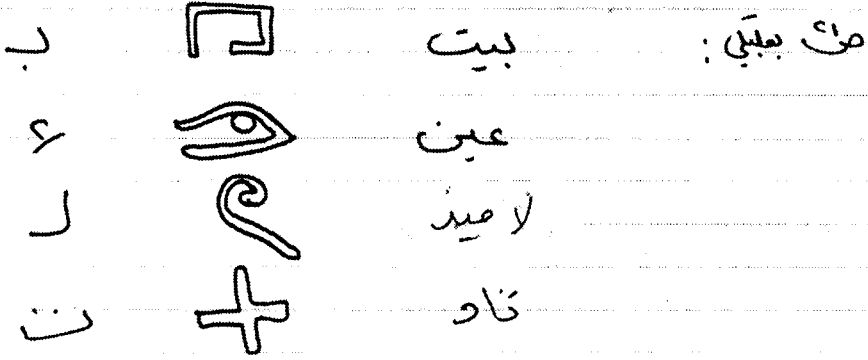 بعلبكي : بيت ب
عين ع
لاميد ل
تاو ت